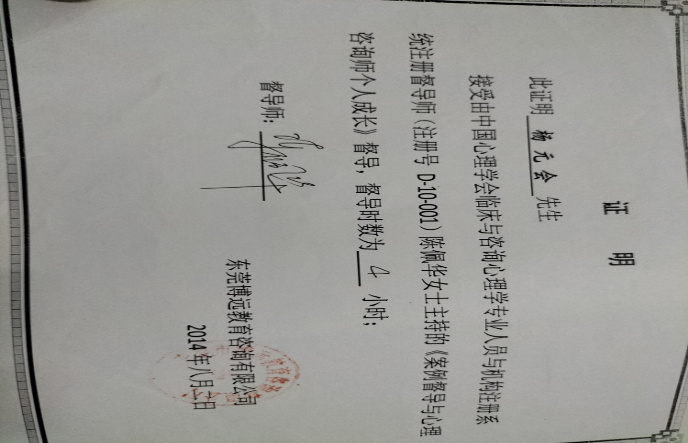 证 明
此证明 杨元会 先生
接受由中国心理学会临床与咨询心理学专业人员与机构注册系
统注册督导师（注册号 D-10-001）陈佩华女士主持的《案例督导与心理
咨询师个人成长》督导，督导时数为 4 小时；
督导师：
东莞博远教育咨询有限公司
2014年八月 日